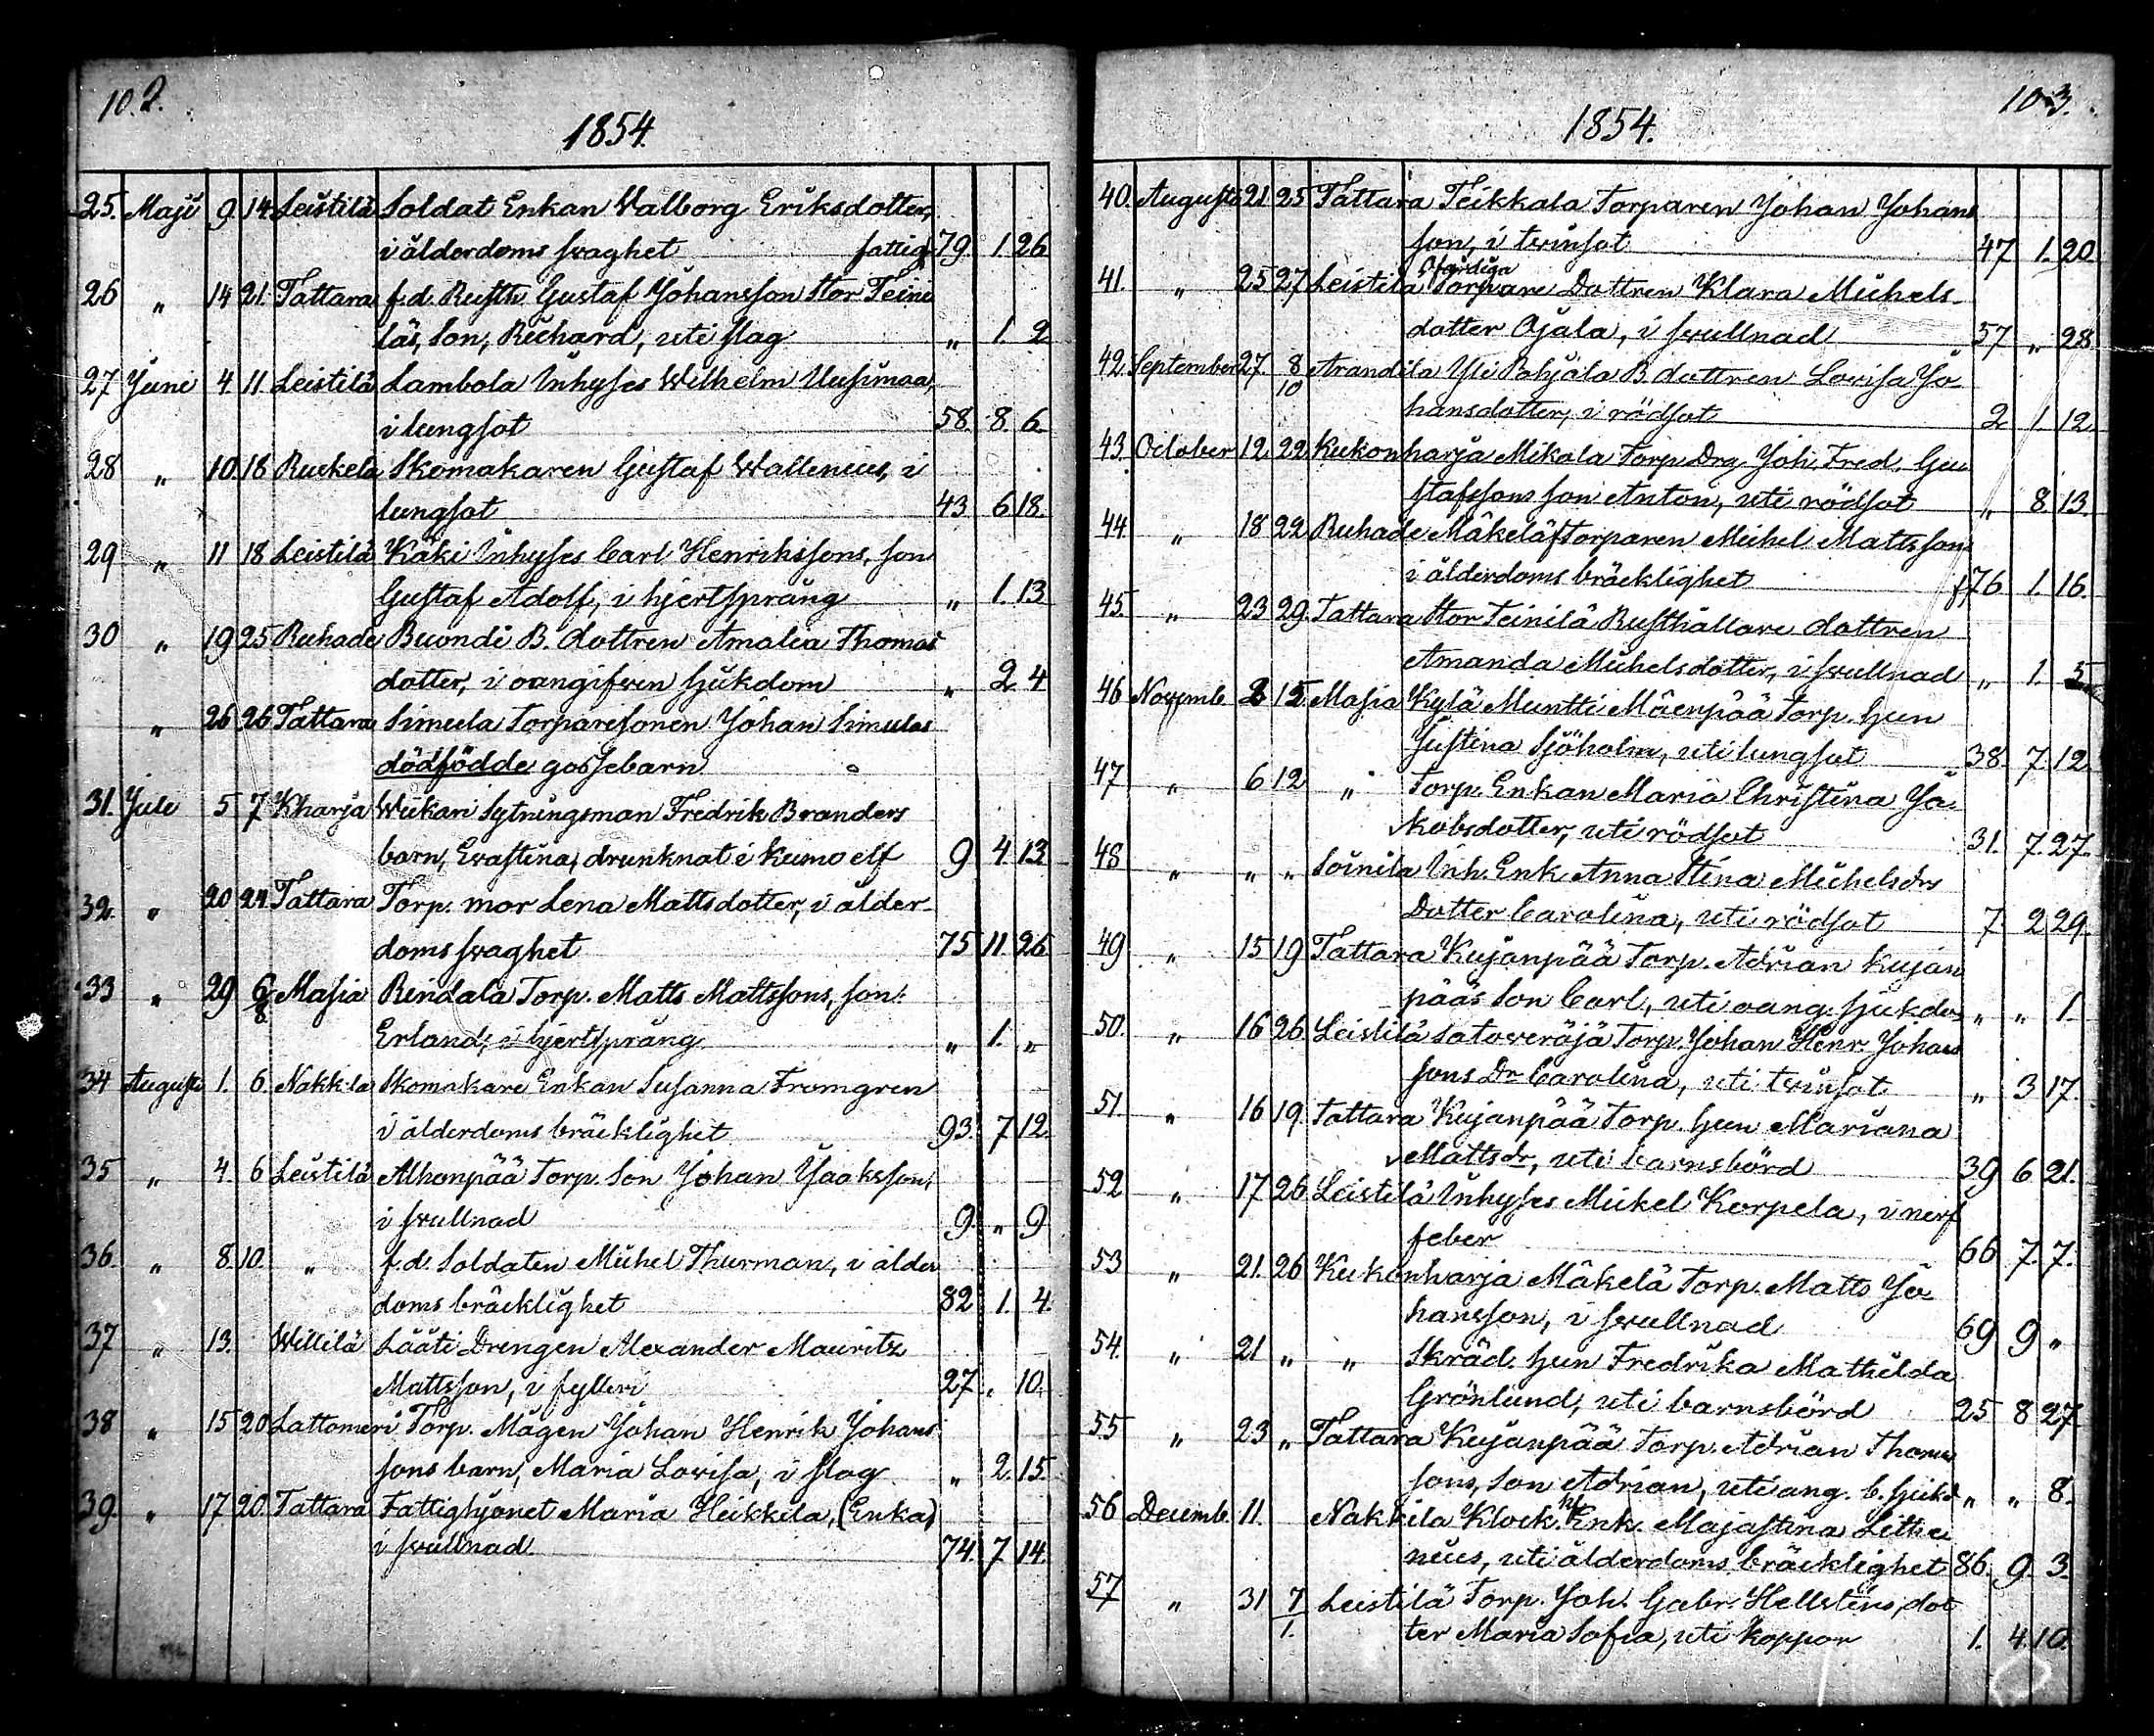 102.
1854.
25. Maji 9. 14. Leistilä Soldat Enkan Valborg Eriksdotter,
i ålderdoms svaghet fattig 79. 1. 26
26 " 14 21. Tattara f.d. Rusth. Gustaf Johansson Stor Teini
läs, Son, Richard, uti slag " 1. 2
27 Juni 4. 11. Leistilä Lambola Inhyses Wilhelm Uusimaa,
i lungsot 58. 8. 6.
28 " 10. 18 Ruskela Skomakaren Gustaf Wallenius, i
lungsot 43 6 18.
29 " 11 18 Leistilä Käki Inhyses Carl Henrikssons, son
Gustaf Adolf, i hjertsprång " 1. 13
30 " 19 25 Ruhade Buondi B. dottren Amalia Thomas
dotter, i oangifven sjukdom " 2 4
" 26 26 Tattara Simula Torparesonen Johan Simulas
dödfödde gossebarn
31. Juli 5 7 Kharja Wiikari Sytningsman Fredrik Branders
barn, Evastina, drunknat i Kumo elf 9 4 13
32. " 20 24. Tattara Torp. mor Lena Mattsdotter, i ålder
doms svaghet 75 11 26
33 " 29 6/8 Masia Rindala Torp. Matts Mattssons, son:
Erland, i hjertsprång " 1. "
34 Augusti 1. 6 Nakkila Skomakare Enkan Susanna Fromgren
i ålderdoms bräcklighet 93. 7 12
35 " 4. 6 Leistilä Alhonpää Torp. Son Johan Isaksson,
i svullnad 9. " 9
36. " 8. 10. " f.d. Soldaten Michel Thurman, i ålder
doms bräcklighet 82 1. 4.
37 " 13. Willilä Lääti Drengen Alexander Mauritz
Mattsson, i fylleri 27 " 10.
38 " 15 20 Lattomeri Torp. Mågen Johan Henrik Johans
sons barn, Maria Lovisa, i slag " 2. 15.
39. " 17 20. Tattara Fattighjonet Maria Heikkilä, (Enka)
i svullnad. 74. 7 14.
103.
1854.
40. Augusti 21. 25 Tattara Teikkala Torparen Johan Johans
son, i tvinsot 47 1. 20.
Ofärdiga
41. " 25 27 Leistilä Torpare Dottren Klara Michels-
dotter Ojala, i svullnad 57 " 28.
42. September 27. 8/10 Arandila Yli Pahjala B. dottren Lovisa Jo
hansdotter, i rödsot 2 1. 12.
43. October 12. 22. Kukonharja Mikola Torp. Drg. Joh. Fred. Gu
stafssons son Anton, uti rödsot " 8 13.
44 " 18 22. Ruhade Mäkelä f Torparen Michel Mattsson,
i ålderdoms bräcklighet f. 76 1. 16.
45. " 23 29. Tattara Stor Teinilä Rusthållare dottren
Amanda Michelsdotter, i svullnad " 1. 5
46 Novemb. 8 15. Masia Kylä Muntti Mäenpää Torp. hun
Justina Sjöholm, uti lungsot 38. 7. 12.
47 " 6 12 " Torp. Enkan Maria Christina Ja
kobsdotter, uti rödsot 31. 7. 27.
48 " " " Soinila Inh. Enk Anna Stina Michelsdrs
Dotter Carolina, uti rödsot 7 2 29.
49 " 15 19 Tattara Kujanpää Torp. Adrian Kujan
pääs Son Carl, uti oang. sjukdom " " 1.
50. " 16 26. Leistilä Satoveräjä Torp. Johan Henr. Johans
sons Dr Carolina, uti tvinsot " 3 17.
51 " 16 19. Tattara Kujanpää Torp. hun Mariana
Mattsdr, uti barnsbörd 39 6 21.
52 " 17 26 Leistilä Inhyses Mickel Korpela, i nerf
feber 66 7. 7.
53 " 21. 26 Kukonharja Mäkelä Torp. Matts Jo
hansson, i svullnad 69 9 "
54. " 21 " " Skräd. hun Fredrika Mathilda
Grönlund, uti barnsbörd 25 8 27
55 " 23 " Tattara Kujanpää Torp. Adrian Thomas
sons, Son Adrian, uti ang. b. sjukd " " 8.
56 Decemb. 11. Nakkila Klock. Enk. Majastina Litte
nius, uti ålderdoms bräcklighet 86. 9. 3.
57 " 31 7/1. Leistilä Torp. Joh. Gabr. Hellsténs, dot
ter Maria Sofia, uti koppor 1. 4. 10.